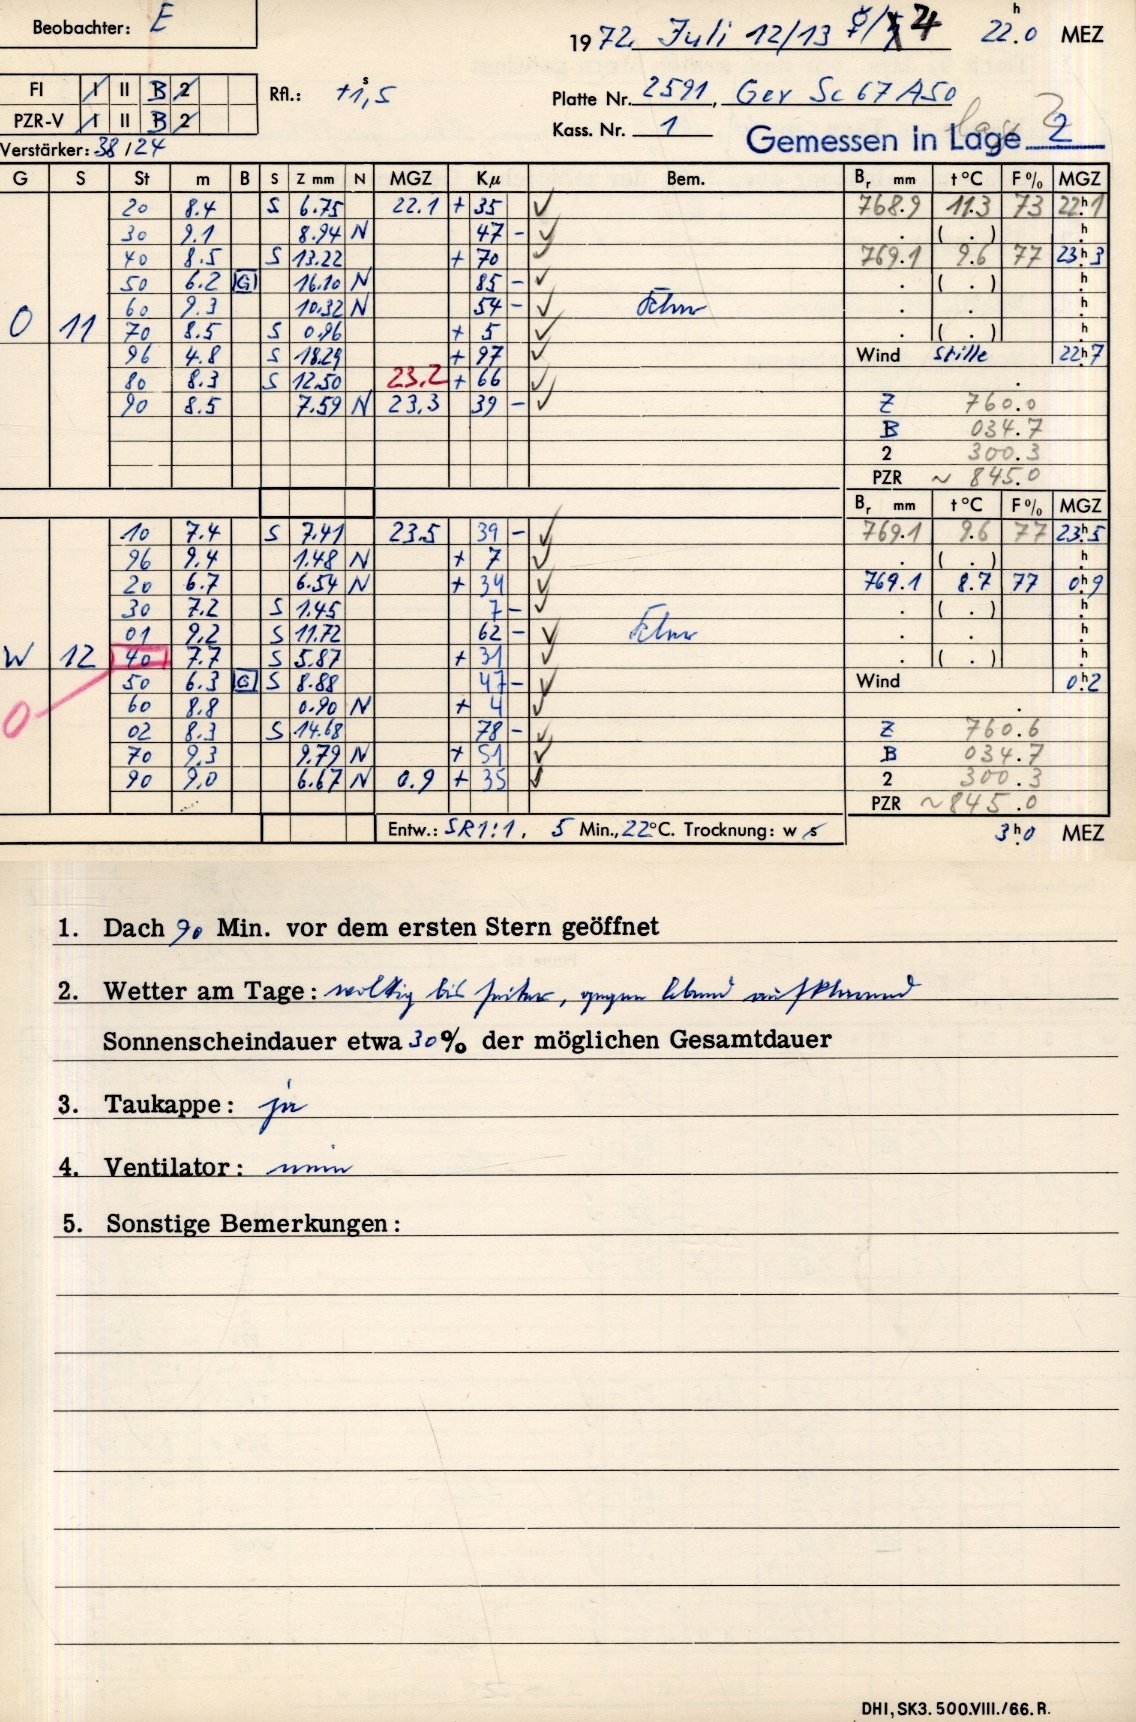 Beobachter: E
1972 Juli 12/13 4 22.0 h MEZ
FI I II B 2
PZR-V I II B 2
Rfl.: +1,5 s
Platte Nr. 2591, Gev Sc 67 A50
Kass. Nr. 1
Gemessen in Lage 2
Verstärker: 38/24
G S St m B S Z mm N MGZ Kμ Bem. Br mm t°C F% MGZ
20 8.4 S 6.75 22.1 + 35 ✓ 768.9 11.3 73 22h1
30 9.1 8.94 N 47 - ✓ . ( . ) h
40 8.5 S 13.22 + 70 ✓ 769.1 9.6 77 23h3
50 6.2 G 16.10 N 85 - ✓ . ( . ) h
60 9.3 10.32 N 54 - ✓ . . h
O 11 70 8.5 S 0.96 + 5 ✓ . ( . ) h
96 4.8 S 18.29 + 97 ✓ Wind stille 22h7
80 8.3 S 12.50 23.2 + 66 ✓ .
90 8.5 7.59 N 23.3 39 - ✓ Z 760.0
B 034.7
2 300.3
PZR ~ 845.0
Br mm t°C F% MGZ
10 7.4 S 7.41 23.5 39 - ✓ 769.1 9.6 77 23h5
96 9.4 1.48 N + 7 ✓ . ( . ) h
20 6.7 6.54 N + 34 ✓ 769.1 8.7 77 0h9
30 7.2 S 1.45 7 - ✓ . ( . ) h
01 9.2 S 11.72 62 - ✓ . . h
W 12 40 7.7 S 5.87 + 31 ✓ . ( . ) h
50 6.3 G S 8.88 47 - ✓ Wind 0h2
O 60 8.8 0.90 N + 4 ✓ .
02 8.3 S 14.68 78 - ✓ Z 760.6
70 9.3 9.79 N + 51 ✓ B 034.7
90 9.0 6.67 N 0.9 + 35 ✓ 2 300.3
PZR ~845.0
Entw.: SR 1:1, 5 Min., 22°C. Trocknung: w s 3h0 MEZ
1. Dach 90 Min. vor dem ersten Stern geöffnet
2. Wetter am Tage: wolkig bis heiter, gegen Abend aufklarend
Sonnenscheindauer etwa 30% der möglichen Gesamtdauer
3. Taukappe: ja
4. Ventilator: nein
5. Sonstige Bemerkungen:
DHI, SK3. 500.VIII./66. R.